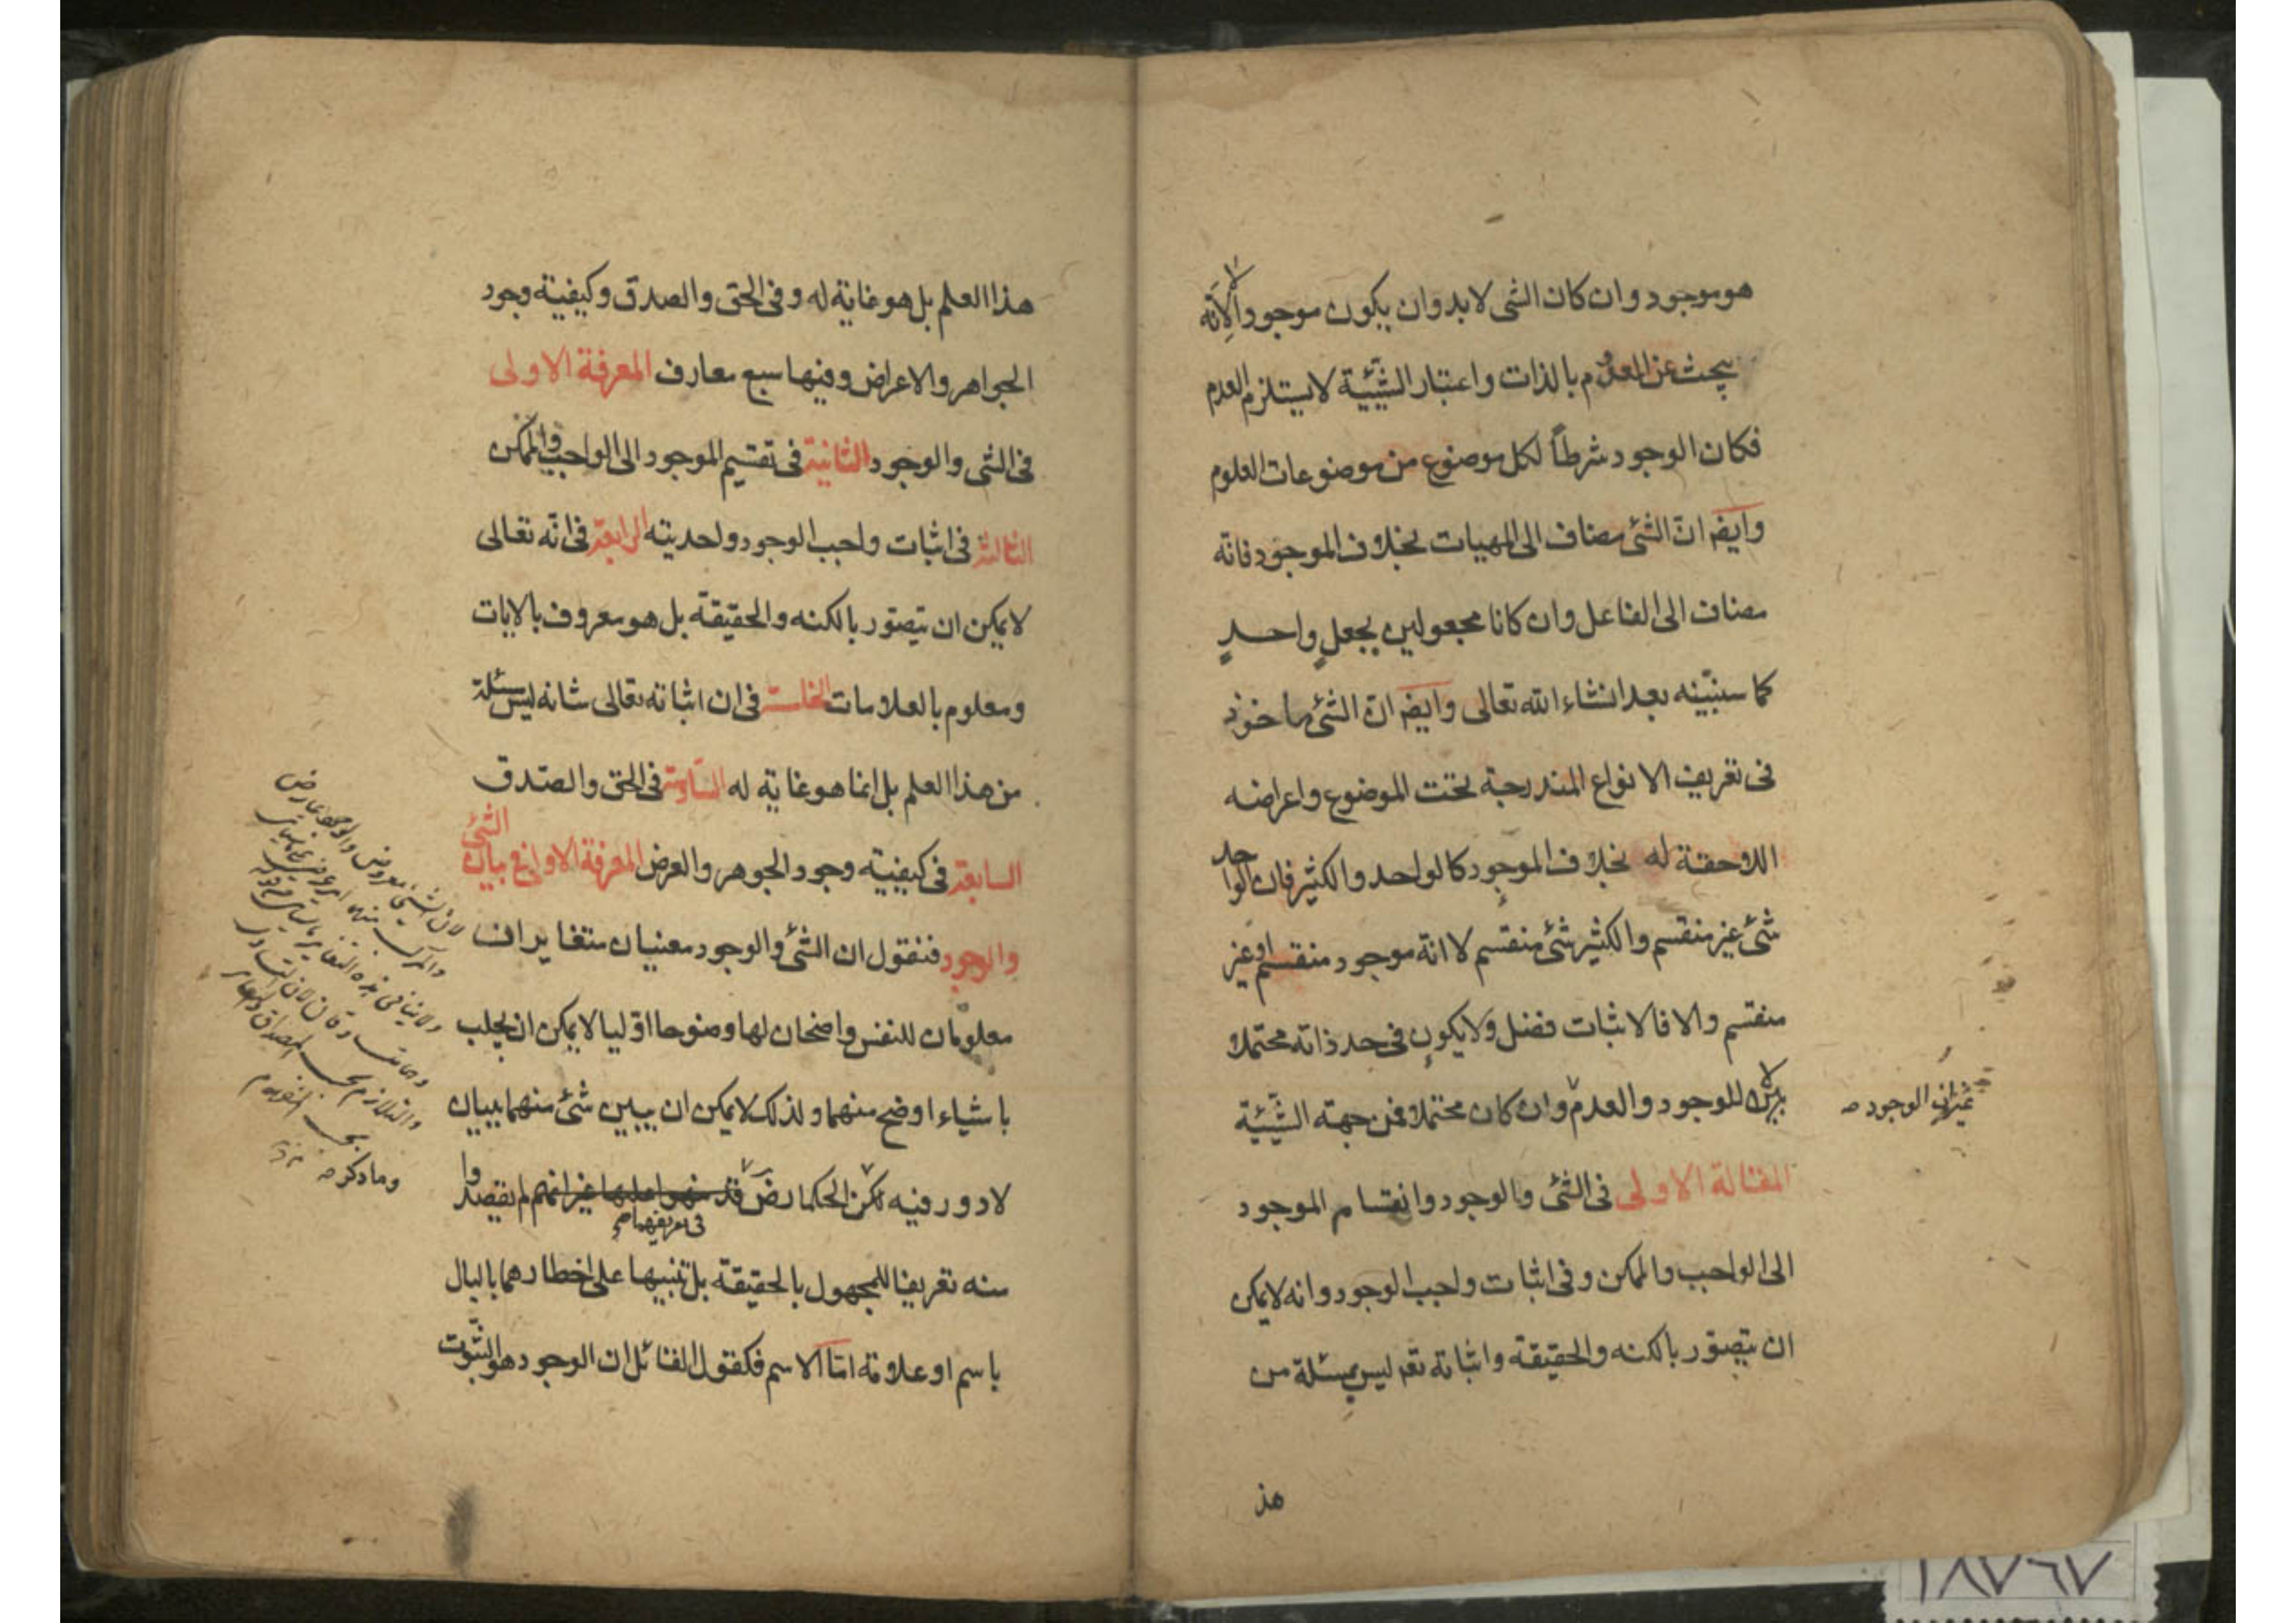 هو موجود وان كان الشى لابد وان يكون موجودا لا لانّه
يبحث عن المعدوم بالذات واعتبار الشيئية لا يستلزم العدم
فكان الوجود شرطاً لكل موضوع من موضوعات العلوم
وايضا انّ الشئ مضاف الى المهيات بخلاف الموجود فانّه
مضاف الى الفاعل وان كانا مجعولين بجعلٍ واحدٍ
كما سنبيّنه بعد انشاء الله تعالى وايضا انّ الشئ ماخوذ
فى تعريف الانواع المندرجة تحت الموضوع واعراضه
اللاحقة له بخلاف الموجود كالواحد والكثير فان الواحد
شئ غير منقسم والكثير شئ منقسم لا انّه موجود منقسم او غير
منقسم والا فالاثبات فضل ولا يكون فى حد ذاته محتملا
للوجود والعدم وان كان محتملا فمن جهة الشيئية
غير ان الوجود صح
المقالة الاولى فى الشئ والوجود وانقسام الموجود
الى الواجب والممكن وفى اثبات واجب الوجود وانه لا يمكن
ان يتصوّر بالكنه والحقيقة واثباته تعم ليس بمسئلة من
هذ
هذا العلم بل هو غاية له وفى الحق والصدق وكيفية وجود
الجواهر والاعراض وفيها سبع معارف المعرفة الاولى
فى الشى والوجود الثانية فى تقسيم الموجود الى الواجب والممكن
الثالثة فى اثبات واجب الوجود واحديته الرابعة فى انّه تعالى
لا يمكن ان يتصوّر بالكنه والحقيقة بل هو معروف بالايات
ومعلوم بالعلامات الخامسة فى ان اثباته تعالى شانه ليس مسئلة
من هذا العلم بل انما هو غاية له السّادسة فى الحق والصّدق
السابعة فى كيفية وجود الجوهر والعرض المعرفة الاولى فى بيان الشئ
والوجود فنقول ان الشئ والوجود معنيان متغايران
معلومان للنفس واضحان لها وضوحا اوّليا لا يمكن ان يجلب
باشياء اوضح منهما ولذلك لا يمكن ان يبين شئ منهما ببيان
لا دور فيه لكن الحكماء رض قد فى تعريفهما صح لم يقصدوا
منه تعريفا للمجهول بالحقيقة بل تنبيها على اخطارهما بالبال
باسم او علامة امّا الاسم فكقول القائل ان الوجود هو الثّبوت
لان الشئ معروض والوجود عارض